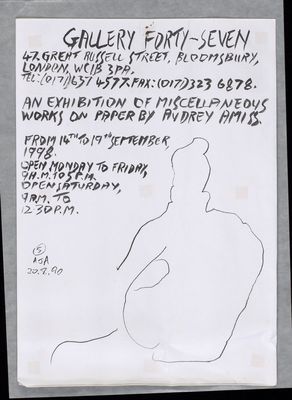 GALLERY FORTY-SEVEN
47. GREAT RUSSELL STREET, BLOOMSBURY,
LONDON, WC1B 3PA.
TEL:(0171)637 4577. FAX:(0171)323 6878.
AN EXHIBITION OF MISCELLANEOUS
WORKS ON PAPER BY AUDREY AMISS.
FROM 14TH TO 19TH SEPTEMBER
1998.
OPEN MONDAY TO FRIDAY,
9A.M. TO 5P.M.
OPEN SATURDAY,
9A.M. TO
12.30P.M.
5
AJA
20.2.90